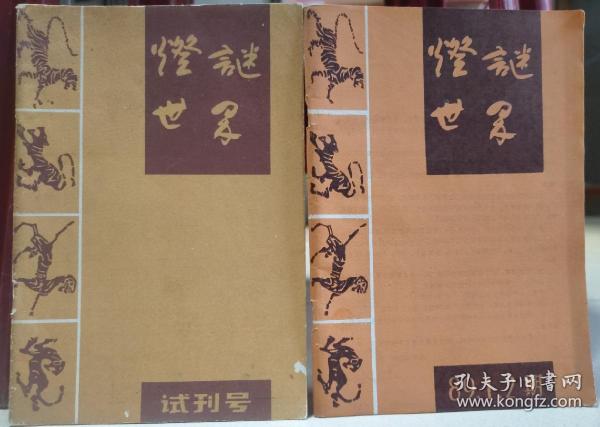 燈謎
世界
试刊号
燈謎
世界
孔夫子旧书网
www.kongfz.com